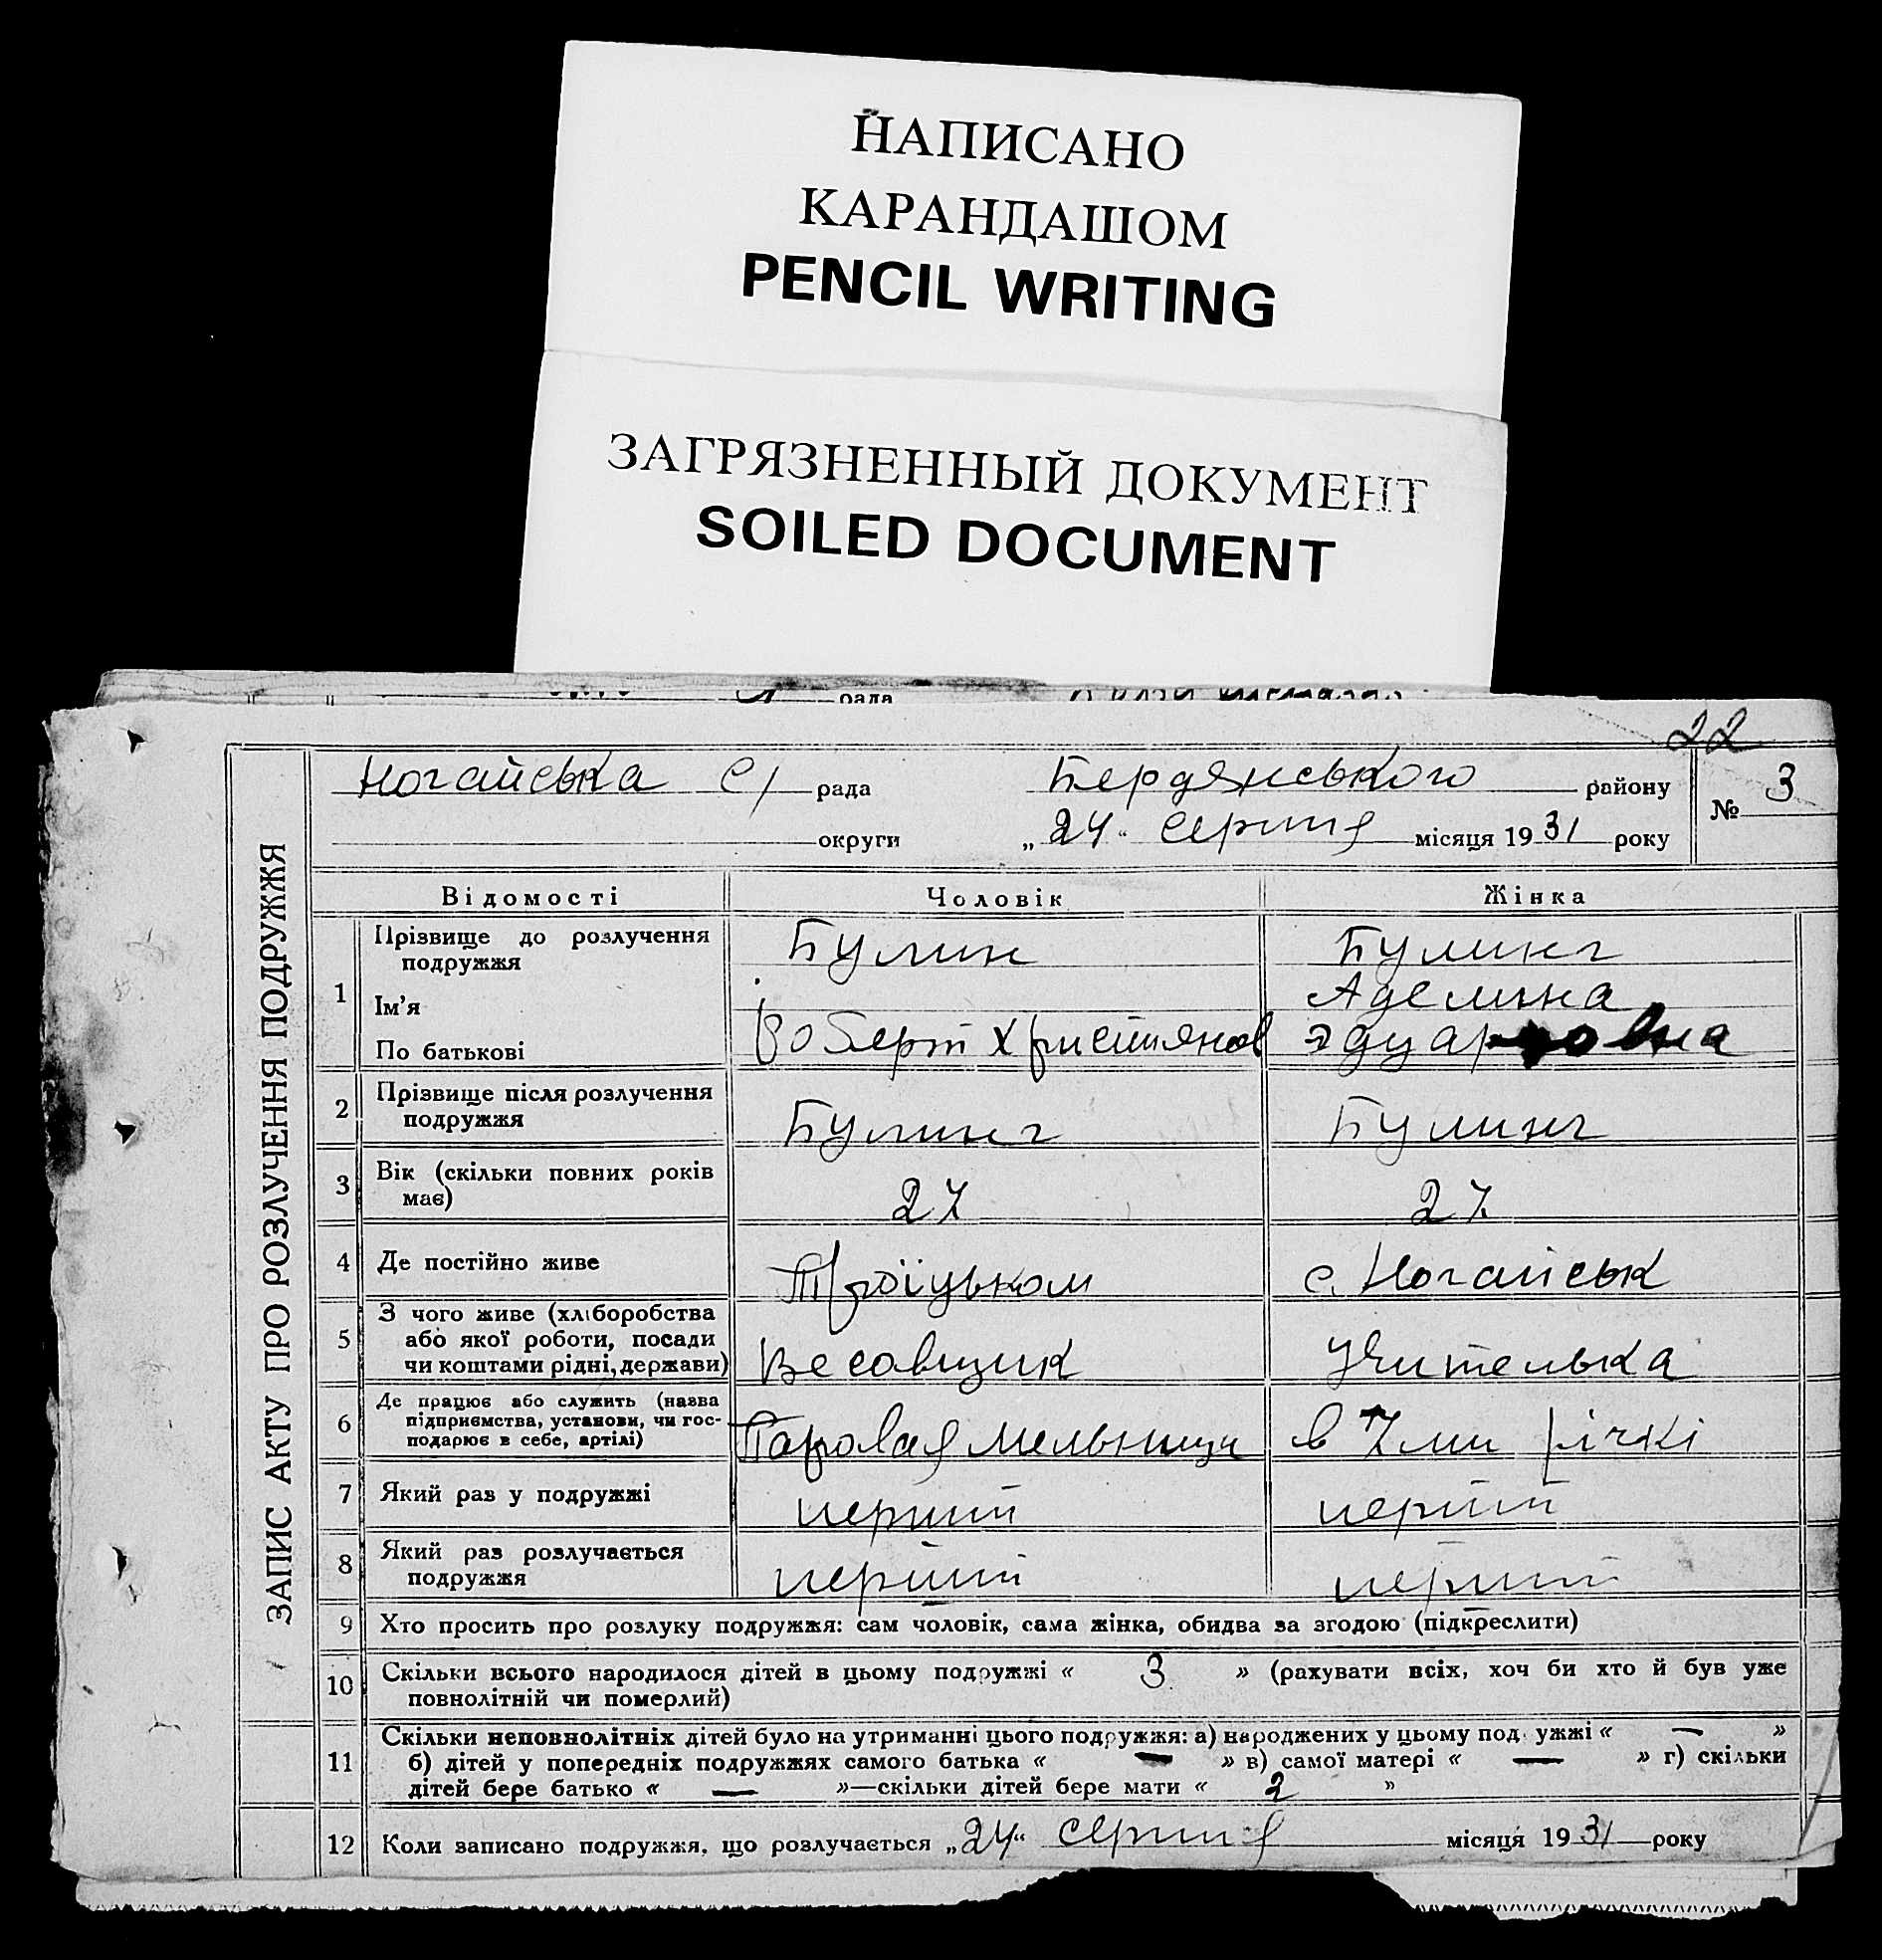 НАПИСАНО
КАРАНДАШОМ
PENCIL WRITING
ЗАГРЯЗНЕННЫЙ ДОКУМЕНТ
SOILED DOCUMENT
рада
22
Ногайська С/ рада Бердянського району
№ 3
округи „24“ серпня місяця 1931 року
ЗАПИС АКТУ ПРО РОЗЛУЧЕННЯ ПОДРУЖЖЯ
Відомості Чоловік Жінка
1 Прізвище до розлучення подружжя Булин Булинг
Ім'я Аделина
По батькові Роберт Християнов Эдуардовна
2 Прізвище після розлучення
подружжя Булинг Булинг
3 Вік (скільки повних років
має) 27 27
4 Де постійно живе Троїцьком с. Ногайськ
5 З чого живе (хліборобства
або якої роботи, посади
чи коштами рідні, держави) Весовщик Учителька
6 Де працює або служить (назва
підприємства, установи, чи гос-
подарює в себе, артілі) Паровая мельниця в 7ми річкі
7 Який раз у подружжі перший перший
8 Який раз розлучається
подружжя перший перший
9 Хто просить про розлуку подружжя: сам чоловік, сама жінка, обидва за згодою (підкреслити)
10 Скільки всього народилося дітей в цьому подружжі « 3 » (рахувати всіх, хоч би хто й був уже
повнолітній чи померлий)
11 Скільки неповнолітніх дітей було на утриманні цього подружжя: а) народжених у цьому под ужжі « — »
б) дітей у попередніх подружжях самого батька « — » в) самої матері « — » г) скільки
дітей бере батько « — »—скільки дітей бере мати « 2 »
12 Коли записано подружжя, що розлучається „24“ серпня місяця 1931 року